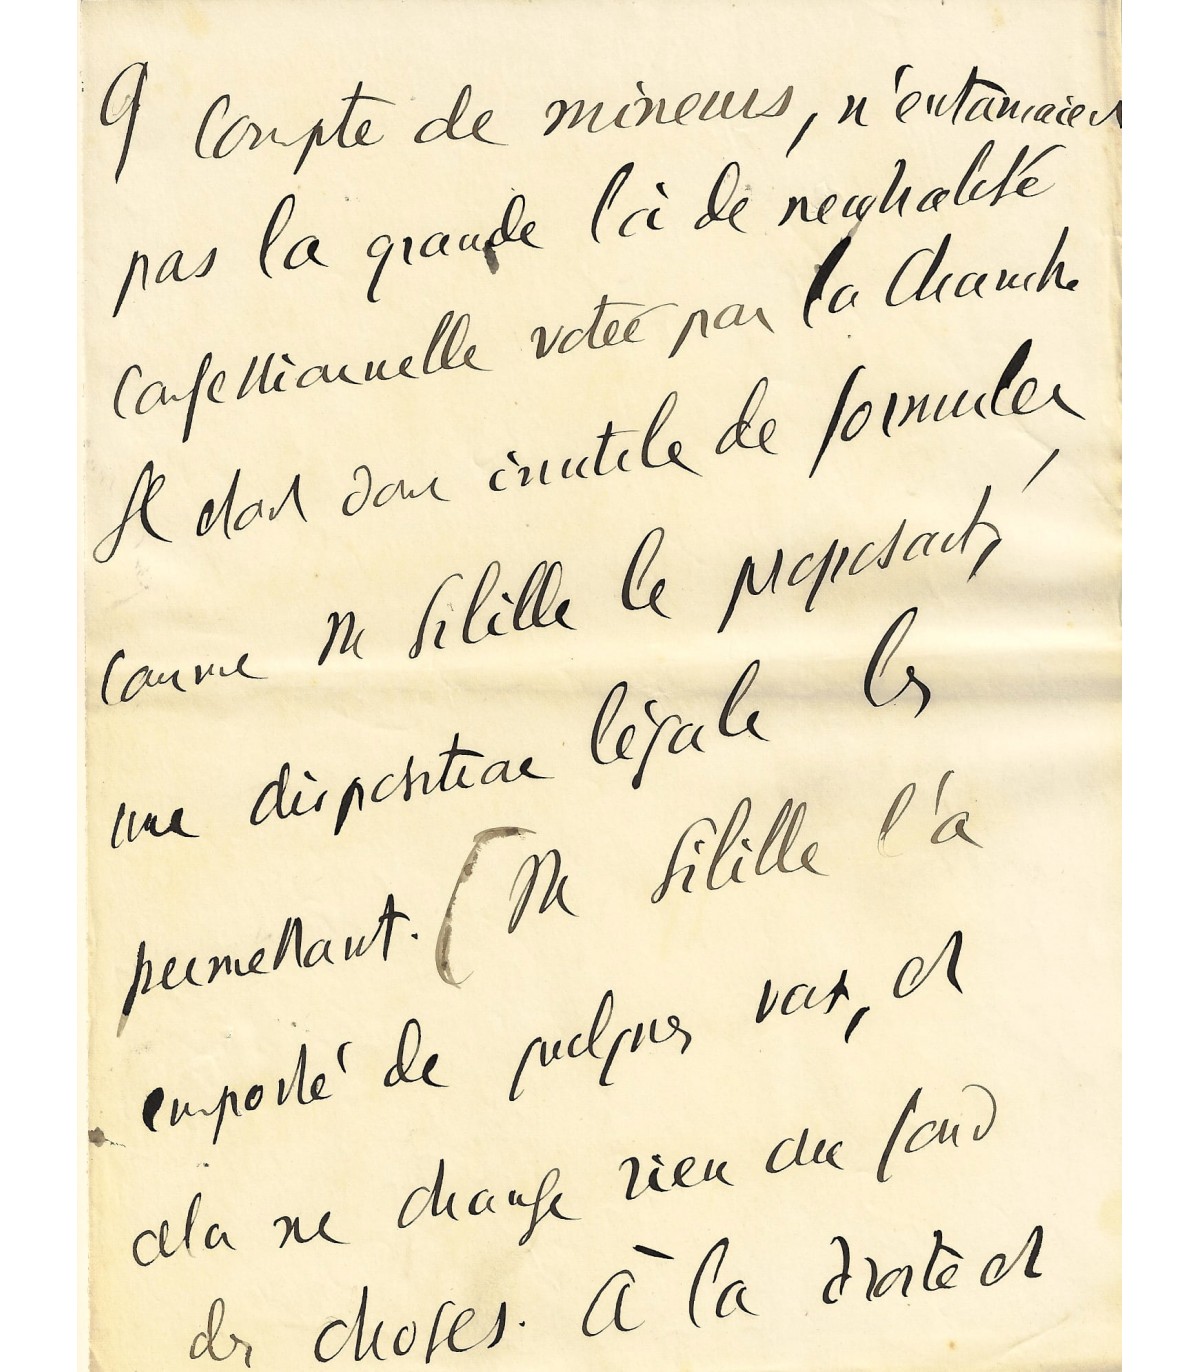 9 compte de mineurs, n'entamaient
pas la grande loi de neutralité
confessionnelle votée par la Chambre
Il était donc inutile de formuler,
comme M Sibille le proposait,
une disposition légale les
permettant. (M Sibille l'a
emporté de quelques voix, et
cela ne change rien au fond
des choses. À la droite et